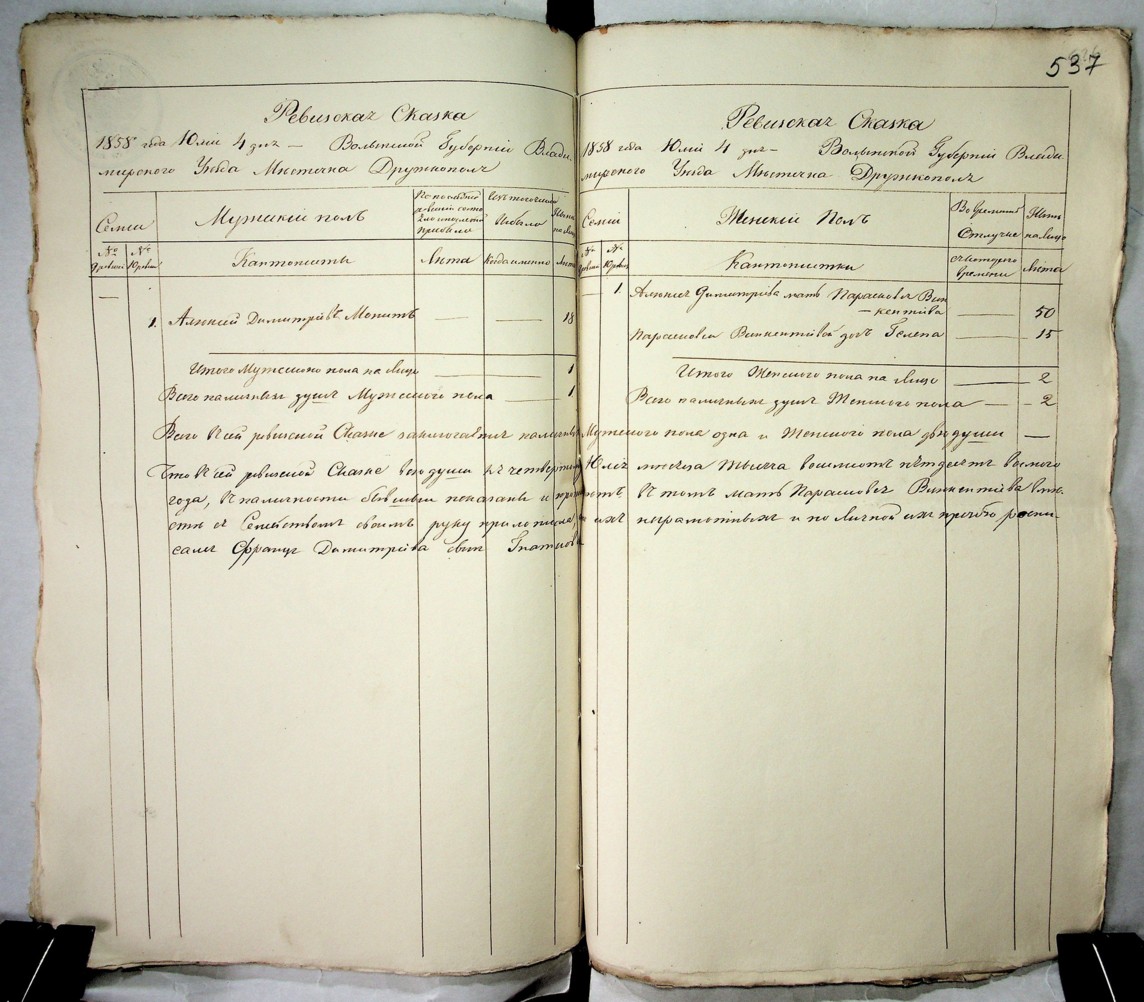 537
Ревизская Сказка
1858 года Юлій 4 дня — Волынской Губерніи Влади
мирскаго Уѣзда Мѣстечка Дружкополь
Семьи
Мужескій полъ
По последней
ревизіи состо
яло и послѣ
прибыло
Изъ того числа
Выбыло
Нынѣ
на лицо
№
9 ревизіи
№
10 ревиз
Кантонистъ
Лѣта
Когда именно
Лѣта
1. Алексѣй Димитріевъ 18
Итого Мужескаго пола на лицо 1
Всего наличныхъ душъ Мужескаго пола 1
Ревизская Сказка
1858 года Юлій 4 дня — Волынской Губерніи Влади
мирскаго Уѣзда Мѣстечка Дружкополь
Семьи
Женскій Полъ
Во временной
Отлучке
Нынѣ
на лицо
№
9 ревизіи
№
10 ревиз
Кантонистки
съ котораго
времени
Лѣта
1 Алексѣя Димитріева мать Парасковія Вин
— кентіева 50
Парасковіи Винкентіевой дочь Гелена 15
Итого Женскаго пола на лицо 2
Всего наличныхъ душъ Женскаго пола — 2
Всего въ сей ревизской Сказке заключается наличныхъ Мужескаго пола одна и Женскаго пола двѣ души —
Что въ сей ревизской Сказке все души къ четвертому Юля месяца тысяча восимсотъ пѣтдесятъ восмого
года, въ наличности бывшыи показаны и въ томъ мать Парасковія Винкентіева
съ Семействомъ своимъ руку приложила, а ихъ неграмотныхъ и по личной ихъ прозбѣ роспи-
салъ Францъ Димитріева сынъ